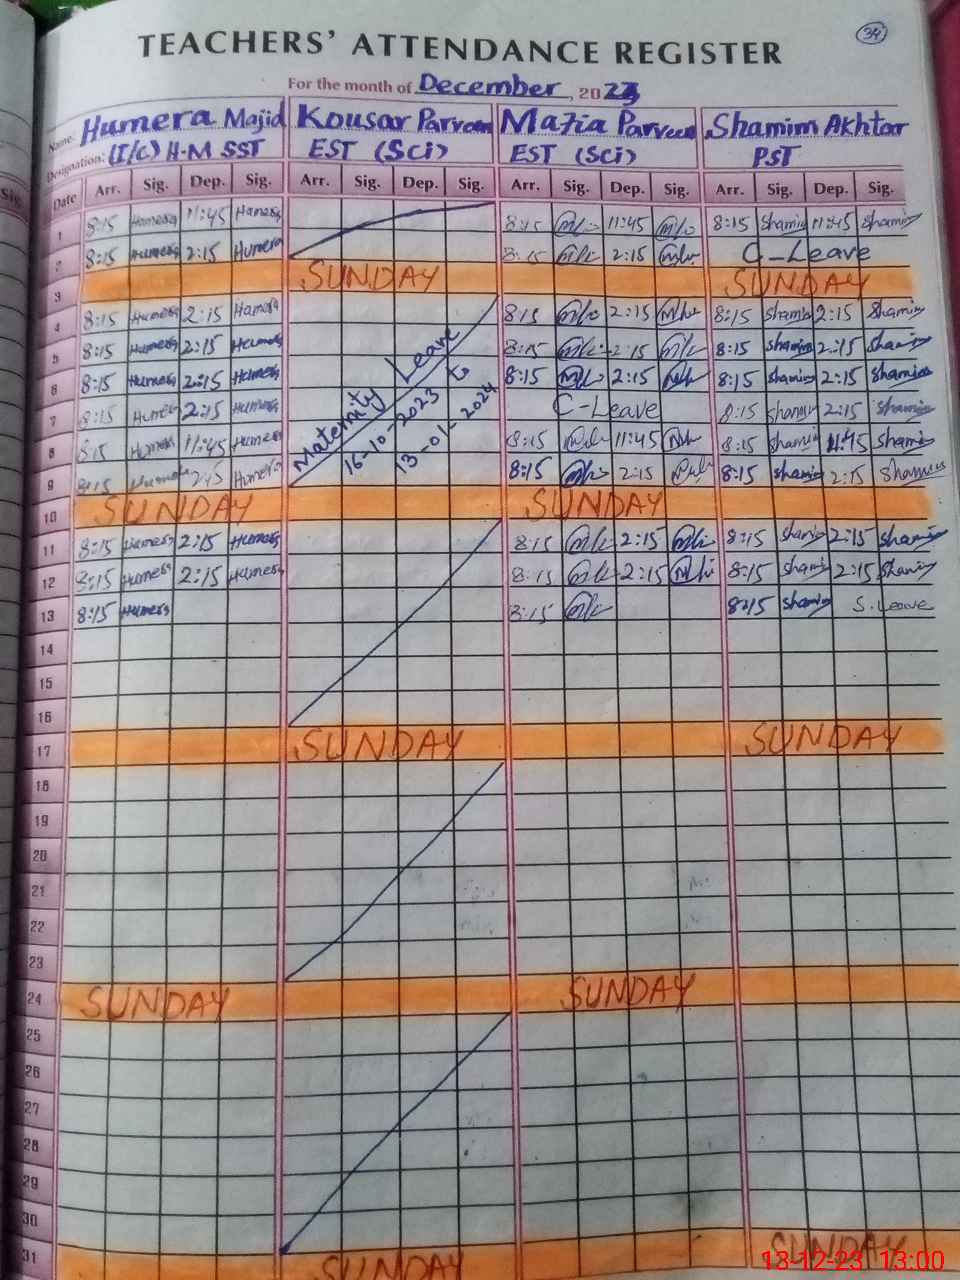 34
TEACHERS' ATTENDANCE REGISTER
For the month of December, 2023
Name: Humera Majid Kousar Parveen Mazia Parveen Shamim Akhtar
Designation: (I/C) H-M SST EST (Sci) EST (Sci) PST
Date Arr. Sig. Dep. Sig. Arr. Sig. Dep. Sig. Arr. Sig. Dep. Sig. Arr. Sig. Dep. Sig.
1 8:15 Humera 11:45 Humera 8:15 11:45 8:15 Shamim 11:45 Shamim
2 8:15 Humera 2:15 Humera 8:15 2:15 C-Leave
3 SUNDAY SUNDAY
4 8:15 Humera 2:15 Humera 8:15 2:15 8:15 Shamim 2:15 Shamim
5 8:15 Humera 2:15 Humera 8:15 2:15 8:15 Shamim 2:15 Shamim
6 8:15 Humera 2:15 Humera 8:15 2:15 8:15 Shamim 2:15 Shamim
7 8:15 Humera 2:15 Humera C-Leave 8:15 Shamim 2:15 Shamim
8 8:15 Humera 11:45 Humera 8:15 11:45 8:15 Shamim 11:45 Shamim
9 8:15 Humera Humera 8:15 2:15 8:15 Shamim 2:15 Shamim
Maternity Leave
16-10-2023 to
13-01-2024
10 SUNDAY SUNDAY
11 8:15 Humera 2:15 Humera 8:15 2:15 8:15 Shamim 2:15 Shamim
12 8:15 Humera 2:15 Humera 8:15 2:15 8:15 Shamim 2:15 Shamim
13 8:15 Humera 8:15 8:15 Shamim S.Leave
14
15
16
17 SUNDAY SUNDAY
18
19
20
21
22
23
24 SUNDAY SUNDAY
25
26
27
28
29
30
31 SUNDAY SUNDAY
13-12-23 13:00